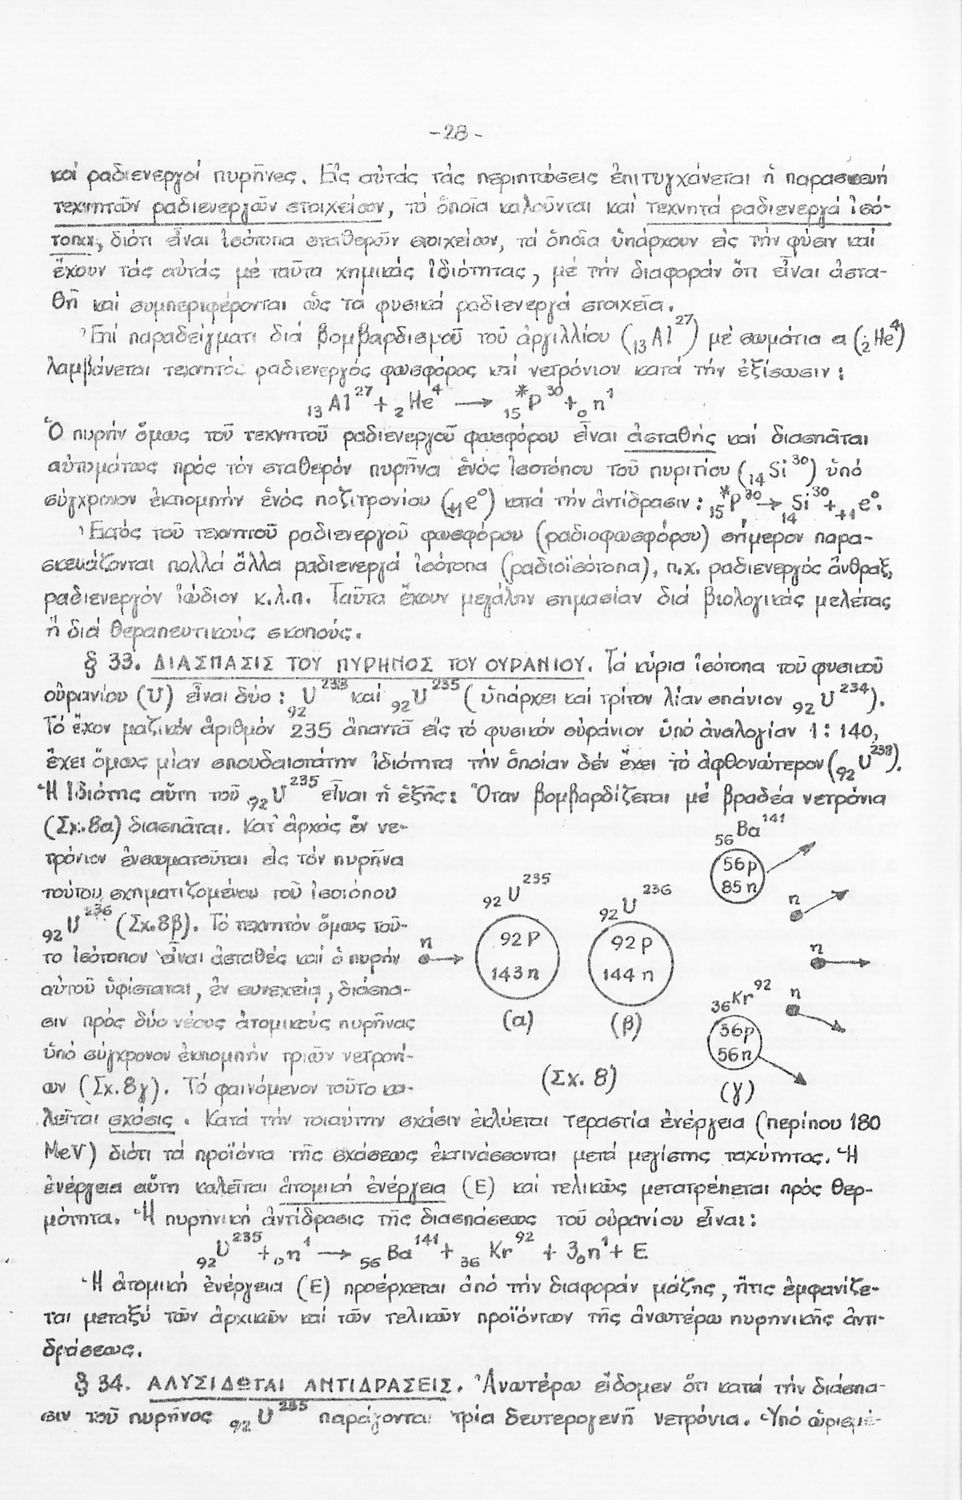 -28-
καί ραδιενεργοί πυρῆνες. Εἰς αὐτάς τάς περιπτώσεις ἐπιτυγχάνεται ἡ παρασκευή
τεχνητῶν ραδιενεργῶν στοιχείων, τά ὁποῖα καλοῦνται καί τεχνητά ραδιενεργά ἰσό-
τοπα, διότι εἶναι ἰσότοπα σταθερῶν στοιχείων, τά ὁποῖα ὑπάρχουν εἰς τήν φύσιν καί
ἔχουν τάς αὐτάς μέ ταῦτα χημικάς ἰδιότητας, μέ τήν διαφοράν ὅτι εἶναι ἀστα-
θῆ καί συμπεριφέρονται ὡς τά φυσικά ραδιενεργά στοιχεῖα.
Ἐπί παραδείγματι διά βομβαρδισμοῦ τοῦ ἀργιλλίου (₁₃Al²⁷) μέ σωμάτια α (₂He⁴)
λαμβάνεται τεχνητός ραδιενεργός φωσφόρος καί νετρόνιον κατά τήν ἐξίσωσιν:
₁₃Al²⁷ + ₂He⁴ → ₁₅*P³⁰ + ₀n¹
Ὁ πυρήν ὅμως τοῦ τεχνητοῦ ραδιενεργοῦ φωσφόρου εἶναι ἀσταθής καί διασπᾶται
αὐτομάτως πρός τόν σταθερόν πυρῆνα ἑνός ἰσοτόπου τοῦ πυριτίου (₁₄Si³⁰) ὑπό
σύγχρονον ἐκπομπήν ἑνός ποζιτρονίου (₊₁e⁰) κατά τήν ἀντίδρασιν: ₁₅*P³⁰ → ₁₄Si³⁰ + ₊₁e⁰.
Ἐκτός τοῦ τεχνητοῦ ραδιενεργοῦ φωσφόρου (ραδιοφωσφόρου) σήμερον παρα-
σκευάζονται πολλά ἄλλα ραδιενεργά ἰσότοπα (ραδιοϊσότοπα), π.χ. ραδιενεργός ἄνθραξ,
ραδιενεργόν ἰώδιον κ.λ.π. Ταῦτα ἔχουν μεγάλην σημασίαν διά βιολογικάς μελέτας
ἤ διά θεραπευτικούς σκοπούς.
§ 33. ΔΙΑΣΠΑΣΙΣ ΤΟΥ ΠΥΡΗΝΟΣ ΤΟΥ ΟΥΡΑΝΙΟΥ. Τά κύρια ἰσότοπα τοῦ φυσικοῦ
οὐρανίου (U) εἶναι δύο: ₉₂U²³⁸ καί ₉₂U²³⁵ (ὑπάρχει καί τρίτον λίαν σπάνιον ₉₂U²³⁴).
Τό ἔχον μαζικόν ἀριθμόν 235 ἀπαντᾶ εἰς τό φυσικόν οὐράνιον ὑπό ἀναλογίαν 1:140,
ἔχει ὅμως μίαν σπουδαιοτάτην ἰδιότητα τήν ὁποίαν δέν ἔχει τό ἀφθονώτερον (₉₂U²³⁸).
Ἡ ἰδιότης αὕτη τοῦ ₉₂U²³⁵ εἶναι ἡ ἑξῆς: Ὅταν βομβαρδίζεται μέ βραδέα νετρόνια
(Σχ. 8α) διασπᾶται. Κατ' ἀρχάς ἕν νε-
τρόνιον ἐνσωματοῦται εἰς τόν πυρῆνα
τούτου σχηματιζομένου τοῦ ἰσοτόπου
₉₂U²³⁶ (Σχ. 8β). Τό τεχνητόν ὅμως τοῦ-
το ἰσότοπον εἶναι ἀσταθές καί ὁ πυρήν
αὐτοῦ ὑφίσταται, ἐν συνεχείᾳ, διάσπα-
σιν πρός δύο νέους ἀτομικούς πυρῆνας
ὑπό σύγχρονον ἐκπομπήν τριῶν νετρονί-
ων (Σχ. 8γ). Τό φαινόμενον τοῦτο κα-
n
₉₂U²³⁵
92p
143n
(α)
₉₂U²³⁶
92p
144n
(β)
₅₆Ba¹⁴¹
56p
85n
n
n
₃₆Kr⁹² n
36p
56n
(γ)
(Σχ. 8)
λεῖται σχάσις. Κατά τήν τοιαύτην σχάσιν ἐκλύεται τεραστία ἐνέργεια (περίπου 180
MeV) διότι τά προϊόντα τῆς σχάσεως ἐκτινάσσονται μετά μεγίστης ταχύτητος. Ἡ
ἐνέργεια αὕτη καλεῖται ἀτομική ἐνέργεια (Ε) καί τελικῶς μετατρέπεται πρός θερ-
μότητα. Ἡ πυρηνική ἀντίδρασις τῆς διασπάσεως τοῦ οὐρανίου εἶναι:
₉₂U²³⁵ + ₀n¹ → ₅₆Ba¹⁴¹ + ₃₆Kr⁹² + 3₀n¹ + E
Ἡ ἀτομική ἐνέργεια (Ε) προέρχεται ἀπό τήν διαφοράν μάζης, ἥτις ἐμφανίζε-
ται μεταξύ τῶν ἀρχικῶν καί τῶν τελικῶν προϊόντων τῆς ἀνωτέρω πυρηνικῆς ἀντι-
δράσεως.
§ 34. ΑΛΥΣΙΔΩΤΑΙ ΑΝΤΙΔΡΑΣΕΙΣ. Ἀνωτέρω εἴδομεν ὅτι κατά τήν διάσπα-
σιν τοῦ πυρῆνος ₉₂U²³⁵ παράγονται τρία δευτερογενῆ νετρόνια. Ὑπό ὡρισμέ-